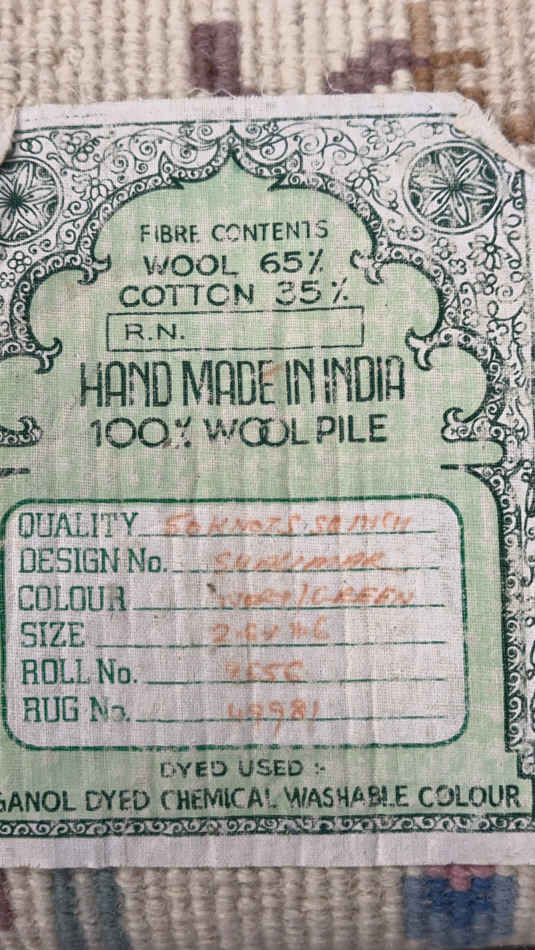 FIBRE CONTENTS
WOOL 65%
COTTON 35%
R.N.
HAND MADE IN INDIA
100% WOOL PILE
QUALITY 50 KNOTS.SQ INCH
DESIGN No. SHALIMAR
COLOUR IVORY/GREEN
SIZE
ROLL No.
RUG No. 49981
DYED USED :-
GANOL DYED CHEMICAL WASHABLE COLOUR